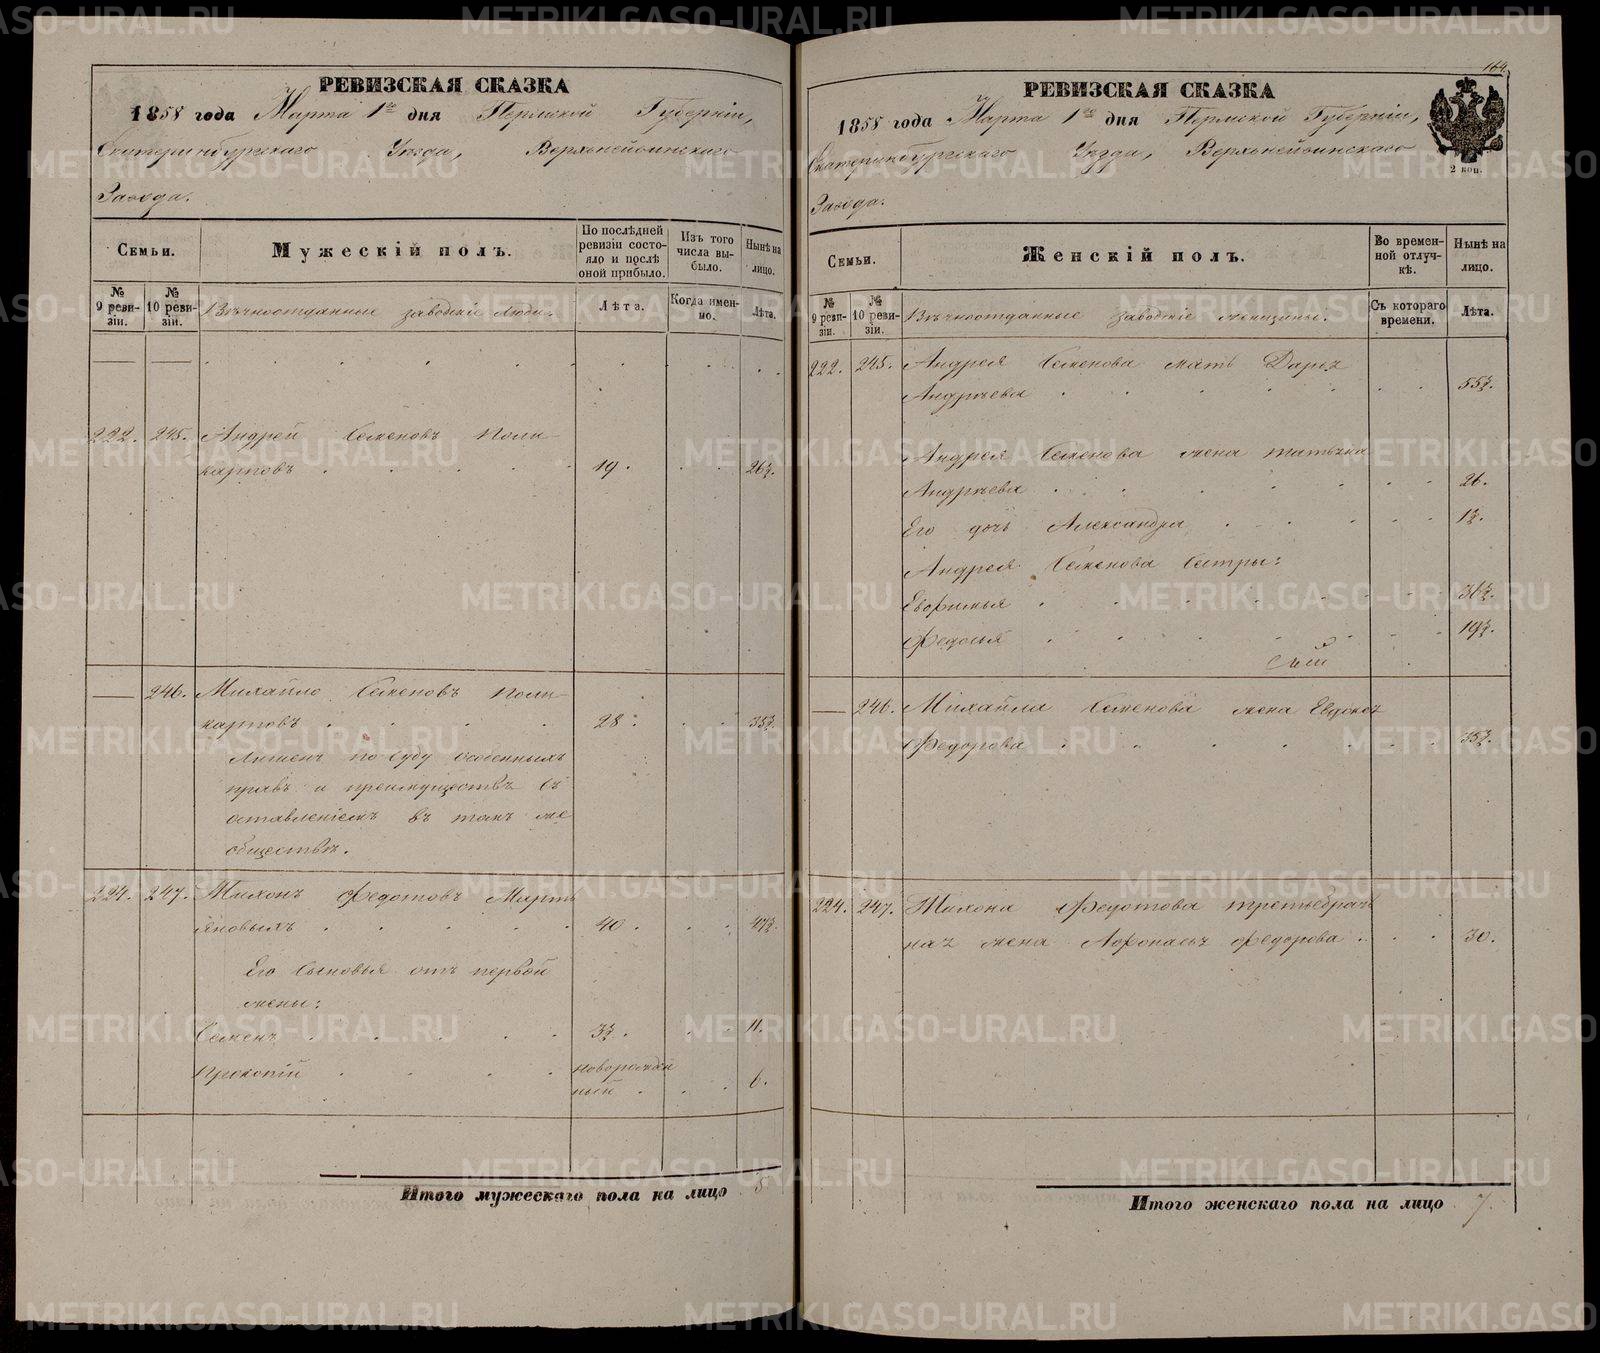 РЕВИЗСКАЯ СКАЗКА
1858 года Марта 1го дня Пермской Губерніи,
Екатеринбургскаго Уѣзда, Верхънейвинскаго
Завода.
Семьи.
Мужескій полъ.
По послѣдней ревизіи состояло и послѣ оной прибыло.
Изъ того числа выбыло.
Нынѣ на лицо.
№ 9 ревизіи.
№ 10 ревизіи.
Вѣчноотданные заводскіе люди.
Лѣта.
Когда именно.
Лѣта.
222. 245. Андрей Семеновъ Поли-
карповъ 19. 26½.
246. Михайло Семеновъ Поли-
карповъ 28. 35½.
Лишенъ по суду особенныхъ
правъ и преимуществъ съ
оставленіемъ въ томъ же
обществѣ.
224. 247. Тихонъ Федотовъ Марть
яновыхъ 40. 47½.
Его Сыновья отъ первой
жены:
Семенъ 3½. 11.
Прокопій новорожден
ный 6.
Итого мужескаго пола на лицо 5
164.
РЕВИЗСКАЯ СКАЗКА
1858 года Марта 1го дня Пермской Губерніи,
Екатеринбургскаго Уѣзда, Верхънейвинскаго
Завода.
2 коп.
Семьи.
Женскій полъ.
Во временной отлучкѣ.
Нынѣ на лицо.
№ 9 ревизіи.
№ 10 ревизіи.
Вѣчноотданные заводскіе женщины.
Съ котораго времени.
Лѣта.
222. 245. Андрея Семенова мать Дарья
Андрѣева 55½.
Андрея Семенова жена Татьяна
Андрѣева 26.
Его дочь Александра 1½.
Андрея Семенова Сестры:
Евфимья 36½.
Федосья 19½.
246. Михайла Семенова жена Евдокья
Федорова 35½.
224. 247. Тихона Федотова третьебрач
ная жена Афонасья Федорова 30.
Итого женскаго пола на лицо 7.
METRIKI.GASO-URAL.RU